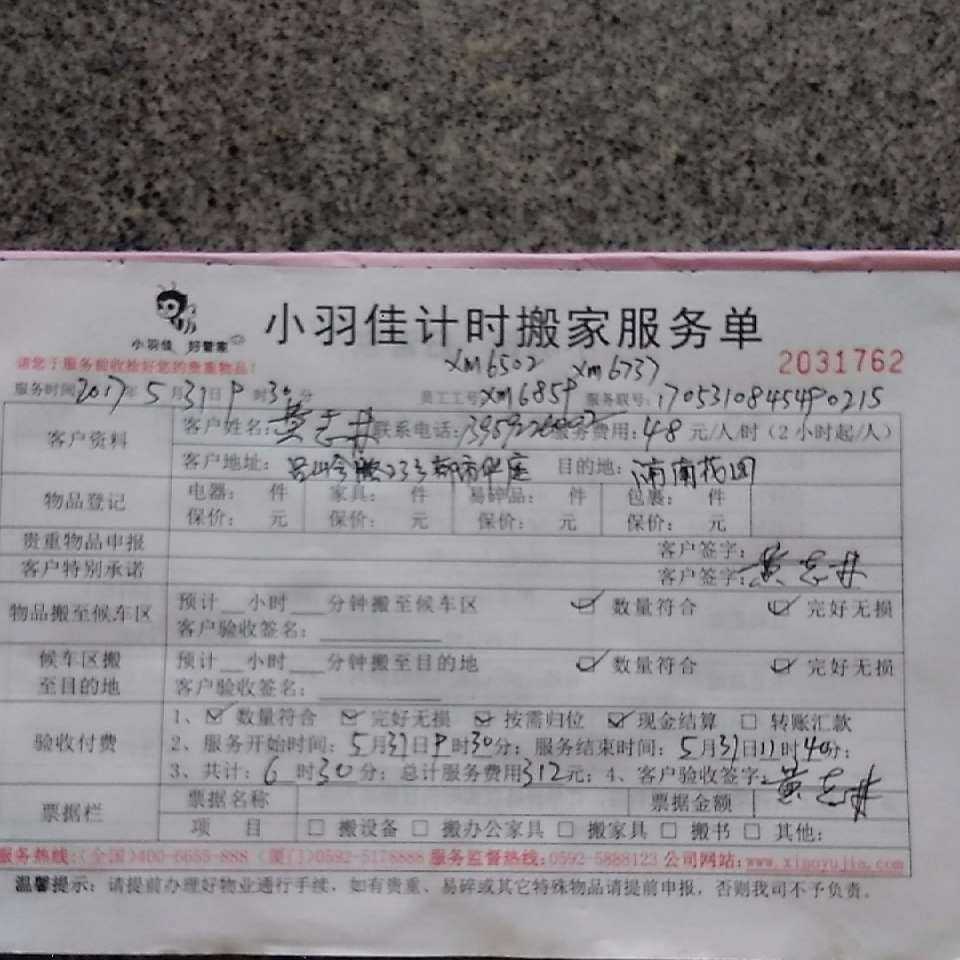 小羽佳 好管家
小羽佳计时搬家服务单
请您于服务前收拾好您的贵重物品!
xm6502 xm6737
2031762
服务时间2017年5月31日9时30分 员工工号xm6859 服务联号:1705310845490215
客户资料
客户姓名:黄志井 联系电话: 服务费用:48元/人/时(2小时起/人)
客户地址: 目的地:湖南花园
物品登记
电器: 件 家具: 件 易碎品: 件 包裹: 件
保价: 元 保价: 元 保价: 元 保价: 元
贵重物品申报 客户签字:
客户特别承诺 客户签字:黄志井
物品搬至候车区
预计__小时___分钟搬至候车区 ☑数量符合 ☑完好无损
客户验收签名:
候车区搬至目的地
预计__小时___分钟搬至目的地 ☑数量符合 ☑完好无损
客户验收签名:
验收付费
1、☑数量符合 ☑完好无损 ☑按需归位 ☑现金结算 □转账汇款
2、服务开始时间:5月31日9时30分;服务结束时间:5月31日11时40分;
3、共计:6时30分;总计服务费用312元;4、客户验收签字:黄志井
票据栏
票据名称 票据金额
项 目 □搬设备 □搬办公家具 □搬家具 □搬书 □其他:
服务热线:(全国)400-6655-888 (厦门)0592-5178888 服务监督热线:0592-5888123 公司网站:www.xiaoyujia.com
温馨提示:请提前办理好物业通行手续,如有贵重、易碎或其它特殊物品请提前申报,否则我司不予负责。